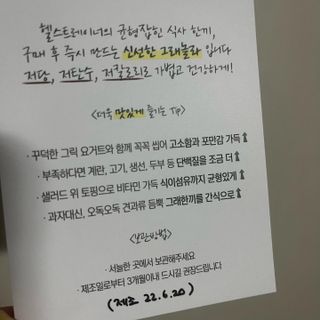 헬스트레이너의 균형잡힌 식사 한끼,
구매 후 즉시 만드는 신선한 그래놀라 입니다
저당, 저탄수, 저칼로리로 가볍고 건강하게!
<더욱 맛있게 즐기는 Tip>
· 꾸덕한 그릭 요거트와 함께 꼭꼭 씹어 고소함과 포만감 가득⬆
· 부족하다면 계란, 고기, 생선, 두부 등 단백질을 조금 더⬆
· 샐러드 위 토핑으로 비타민 가득 식이섬유까지 균형있게⬆
· 과자대신, 오독오독 견과류 듬뿍 그래한끼를 간식으로⬆
<보관방법>
· 서늘한 곳에서 보관해주세요
· 제조일로부터 3개월이내 드시길 권장드립니다
(제조 22.6.20)